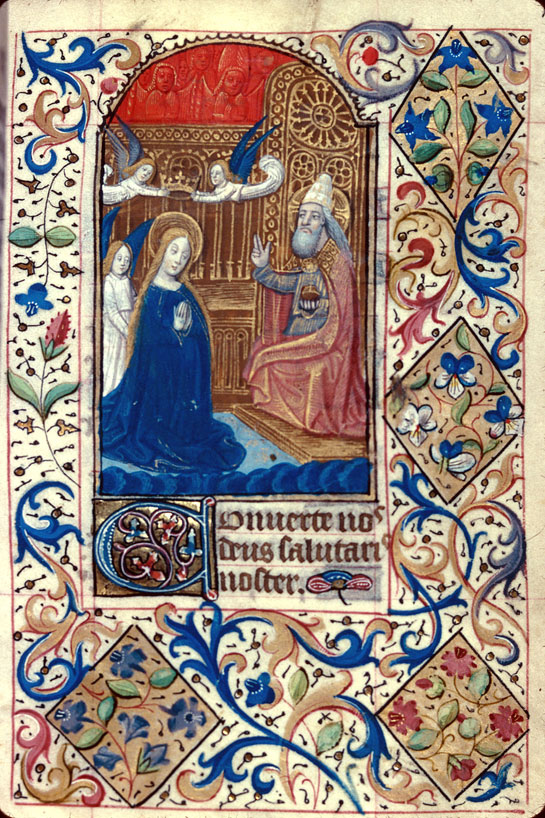 Conuerte nos
deus salutaris
noster.